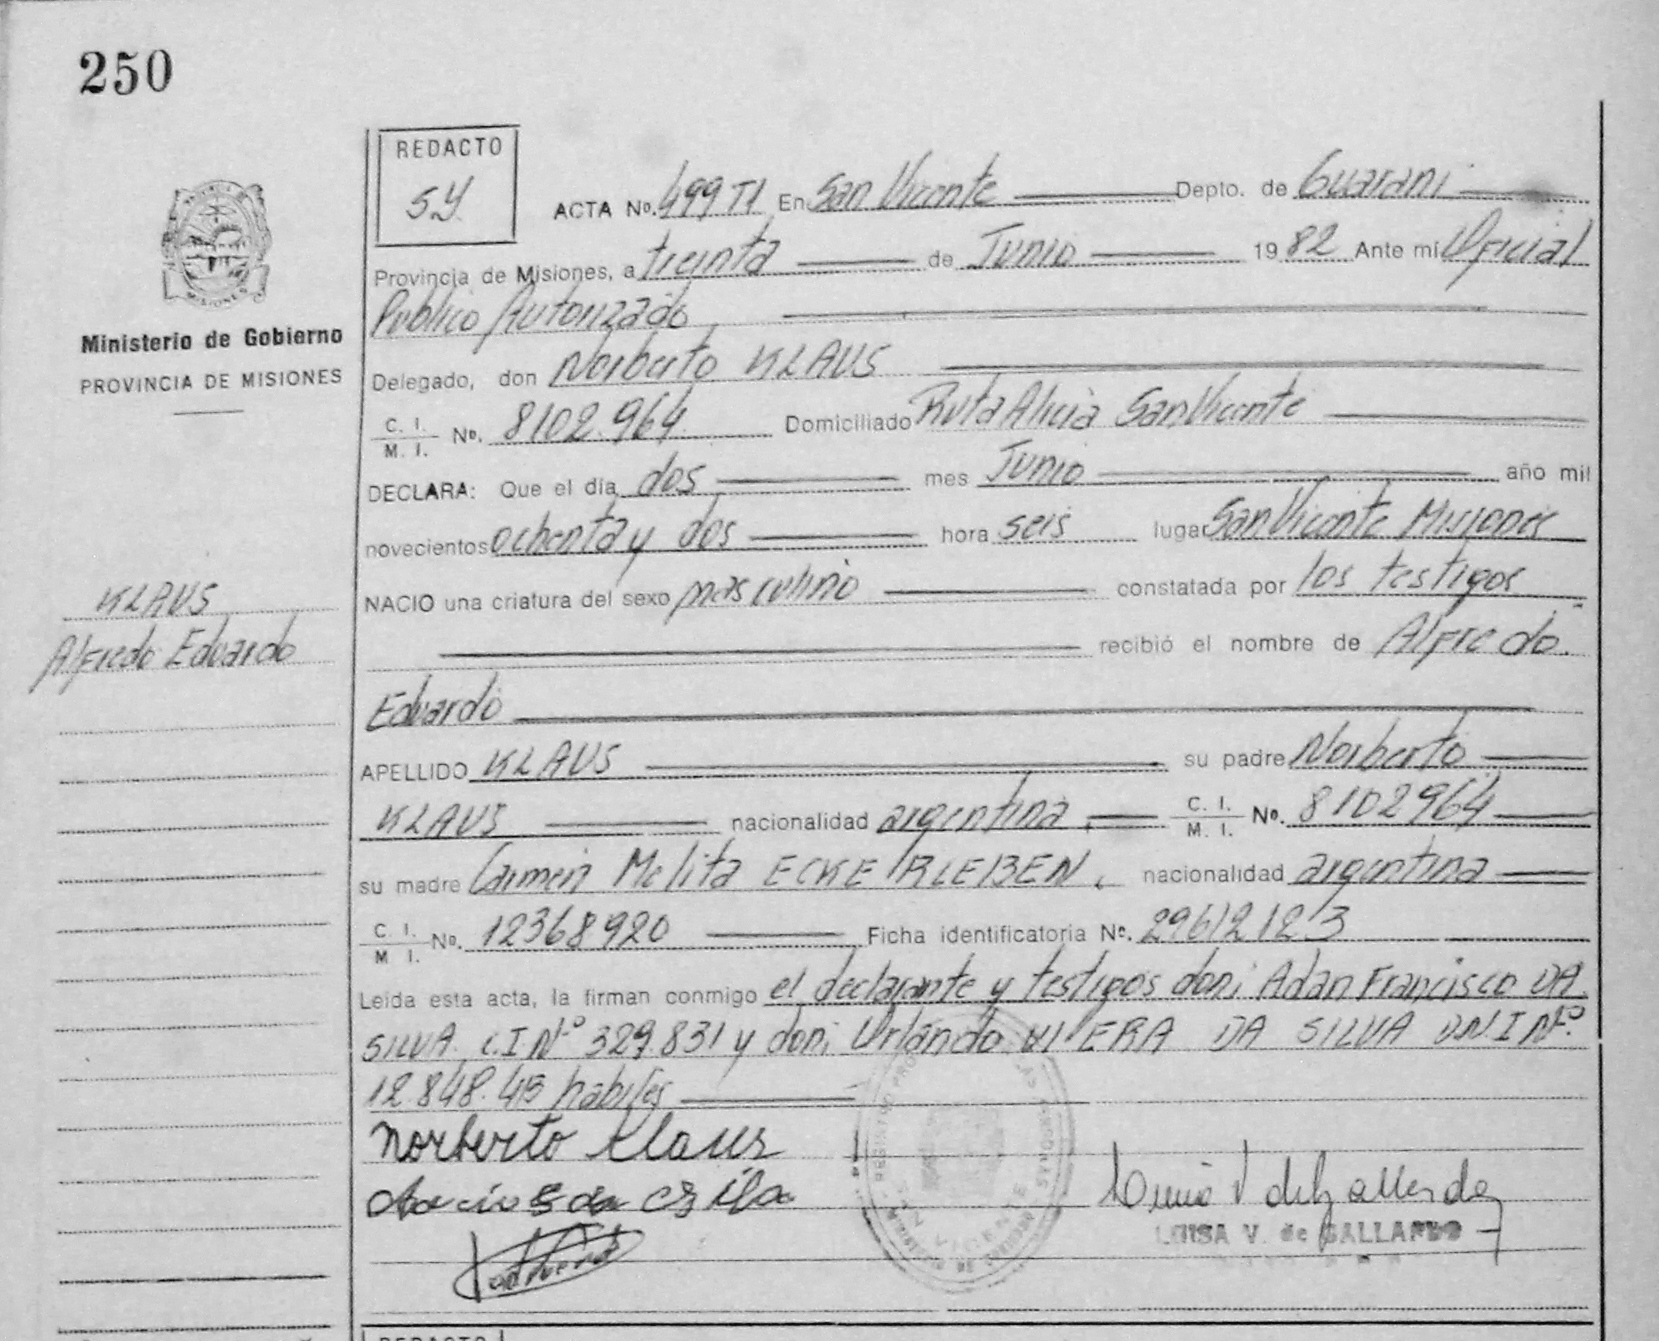 250
REDACTO
SY.
ACTA Nº. 499 TI En San Vicente Depto. de Guarani
Provincia de Misiones, a treinta de Junio 1982 Ante mi Oficial
Publico Autorizado
Ministerio de Gobierno
PROVINCIA DE MISIONES
Delegado, don Norberto KLAUS
C. I.
M. I. Nº. 8102.964 Domiciliado Ruta Alicia San Vicente
DECLARA: Que el día dos mes Junio año mil
novecientos ochenta y dos hora seis lugar San Vicente Misiones
KLAUS
Alfredo Eduardo
NACIO una criatura del sexo masculino constatada por los testigos
recibió el nombre de Alfredo
Eduardo
APELLIDO KLAUS su padre Norberto
KLAUS nacionalidad argentina C. I. M. I. Nº. 8102964
su madre Carmen Melita ECKERLEBEN nacionalidad argentina
C. I.
M I. Nº. 12368920 Ficha identificatoria Nº.
Leída esta acta, la firman conmigo el declarante y testigos don: Adan Francisco DA
SILVA C.I Nº 329.831 y don: Orlando VIERA DA SILVA D.N.I Nº
12.848. habiles
Norberto Klaus
LUISA V. de GALLARDO
REDACTO